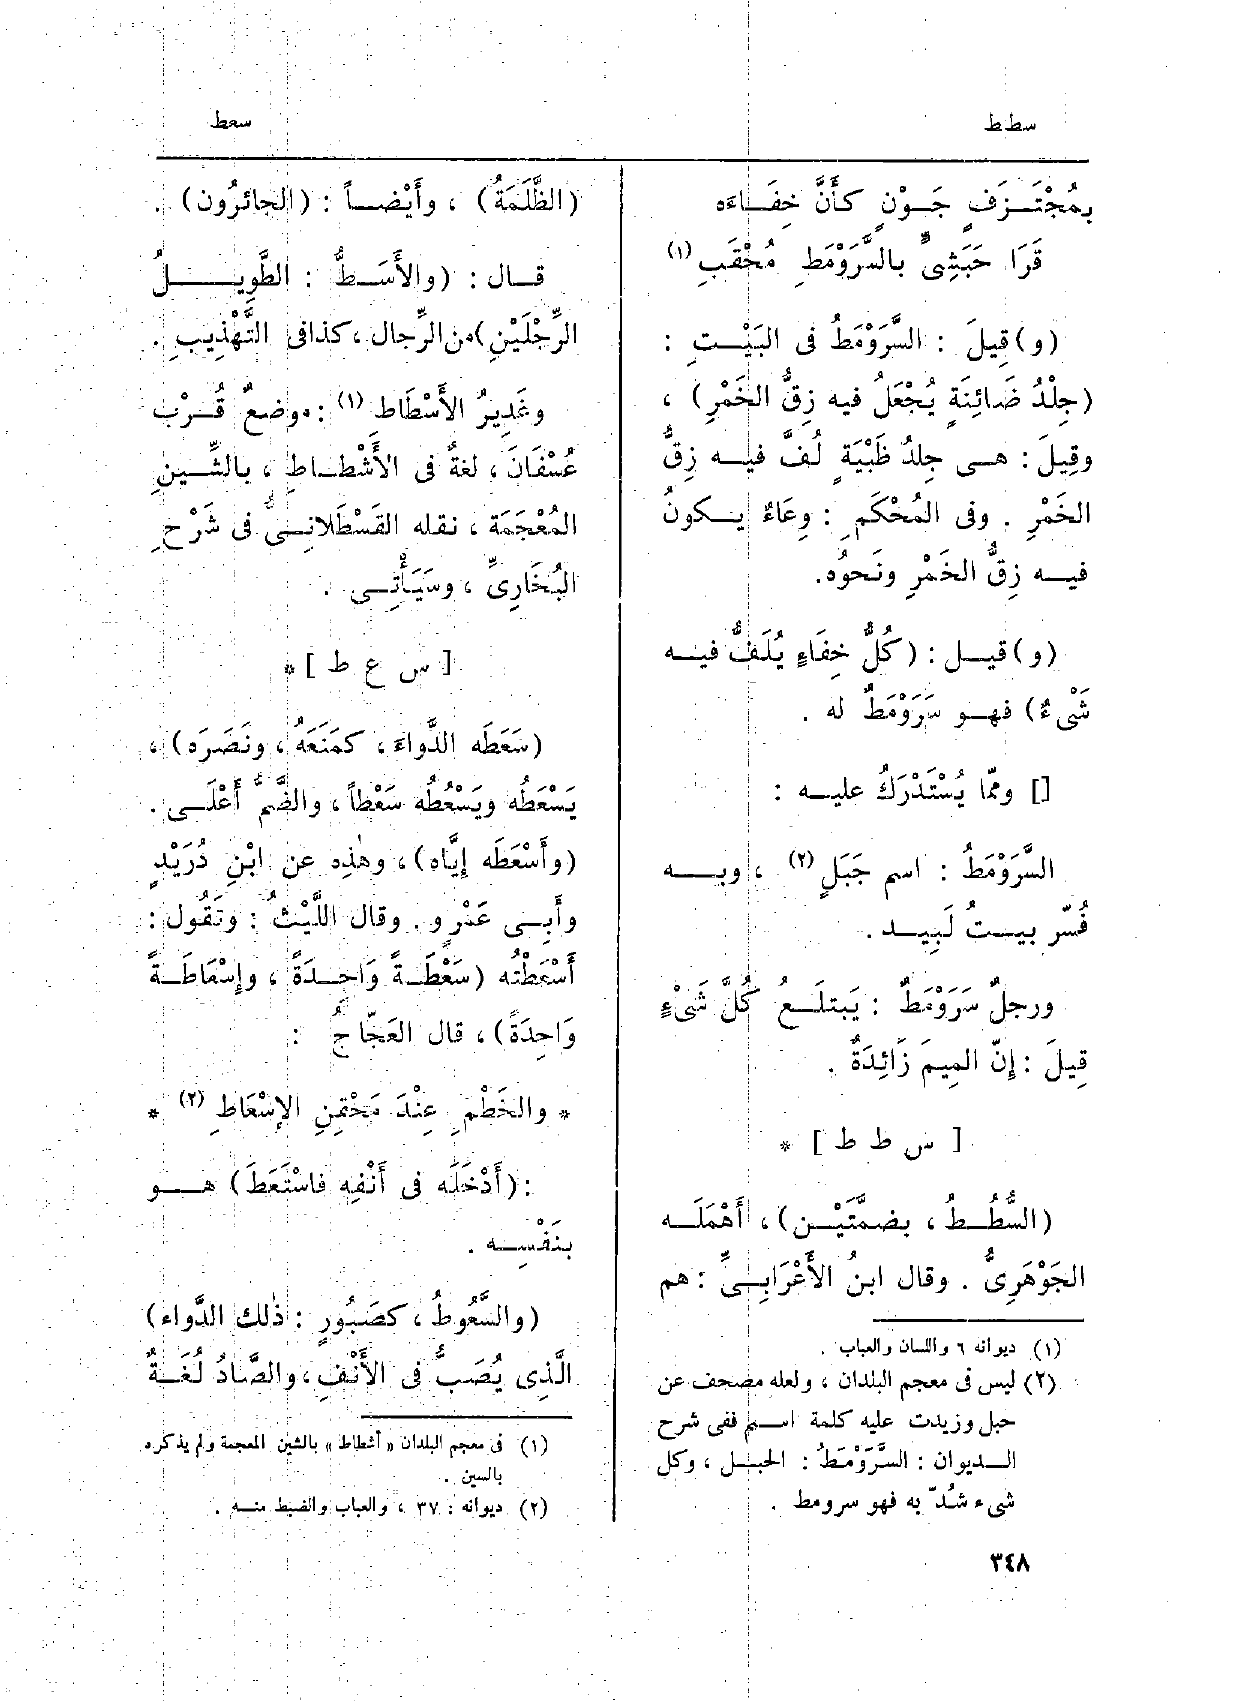 سطط
سعط
بمُجْتَزَفٍ جَوْنٍ كأَنَّ خِفَاءَه
قَرَا حَبَشِىٍّ بالسَّرَوْمَطِ مُحْقَبِ (١)
(و) قِيلَ : السَّرَوْمَطُ فى البَيْتِ :
(جِلْدُ ضَائِنَةٍ يُجْعَلُ فيه زِقُّ الخَمْرِ) ،
وقِيلَ : هى جِلدُ ظَبْيَةٍ لُفَّ فيه زِقُّ
الخَمْرِ . وفى المُحْكَمِ : وِعَاءٌ يكونُ
فيه زِقُّ الخَمْرِ ونَحوُه.
(و) قيل : (كُلُّ خِفَاءٍ يُلَفُّ فيه
شَىْءٌ) فهو سَرَوْمَطٌ له .
[] وممّا يُسْتَدْرَكُ عليه :
السَّرَوْمَطُ : اسم جَبَلٍ (٢) ، وبه
فُسِّر بيتُ لَبِيد .
ورجلٌ سَرَوْمَطٌ : يَبتلَعُ كُلَّ شَىْءٍ
قِيلَ : إِنّ المِيمَ زَائِدَةٌ .
[ س ط ط ] *
(السُّطُطُ ، بضمَّتَيْن) ، أَهْمَلَه
الجَوْهَرِىُّ . وقال ابنُ الأَعْرَابِىِّ : هم
(١) ديوانه ٦ واللسان والعباب .
(٢) ليس فى معجم البلدان ، ولعله مصحف عن
حبل وزيدت عليه كلمة اسم ففى شرح
الديوان : السَّرَوْمَطُ : الحبل ، وكل
شىء شُدّ به فهو سرومط .
(الظَّلَمَةُ) ، وأَيْضاً : (الجائرُون) .
قال : (والأَسَطُّ : الطَّوِيلُ
الرِّجْلَيْنِ) من الرِّجال ، كذا فى التَّهْذِيبِ .
وغَدِيرُ الأَسْطَاطِ (١) : موضعٌ قُرْب
عُسْفَانَ ، لغةٌ فى الأَشْطاطِ ، بالشِّينِ
المُعْجَمَة ، نقله القَسْطَلانِىُّ فى شَرْحِ
البُخَارِىِّ ، وسَيَأْتِى .
[ س ع ط ] *
(سَعَطَه الدَّواءَ ، كمَنَعَهُ ، ونَصَرَه) ،
يَسْعَطُه ويَسْعُطُه سَعْطاً ، والضَّمُّ أَعْلَى .
(وأَسْعَطَه إِيَّاه) ، وهٰذِه عن ابْنِ دُرَيْدٍ
وأَبِى عَمْرٍو . وقال اللَّيْثُ : وتَقُول :
أَسْعَطْتُه (سَعْطَةً وَاحِدَةً ، وإِسْعَاطَةً
وَاحِدَةً) ، قال العَجّاجُ :
* والخَطْمِ عِنْدَ مَحْقِنِ الإِسْعَاطِ (٢) *
: (أَدْخَلَه فى أَنْفِه فاسْتَعَطَ) هو
بنَفْسِه .
(والسَّعُوطُ ، كصَبُورٍ : ذٰلك الدَّواء)
الَّذِى يُصَبُّ فى الأَنْفِ ، والصَّادُ لُغَةٌ
(١) فى معجم البلدان « أشطاط » بالشين المعجمة ولم يذكره
بالسين .
(٢) ديوانه : ٣٧ ، والعباب والضبط منه .
٣٤٨